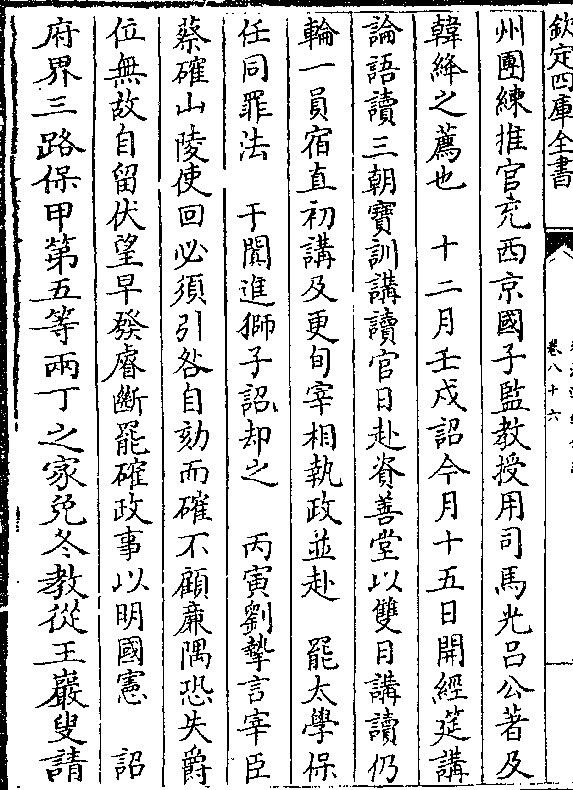 欽定四庫全書
卷八十六
州團練推官充西京國子監教授用司馬光吕公著及
韓絳之薦也　十二月壬戌詔今月十五日開經筵講
論語讀三朝寶訓講讀官日赴資善堂以雙日講讀仍
輪一員宿直初講及更旬宰相執政並赴　罷太學保
任同罪法　于闐進獅子詔却之　丙寅劉摯言宰臣
蔡確山陵使回必須引咎自劾而確不顧廉隅恐失爵
位無故自留伏望早發睿斷罷確政事以明國憲　詔
府界三路保甲第五等兩丁之家免冬教從王巖叟請